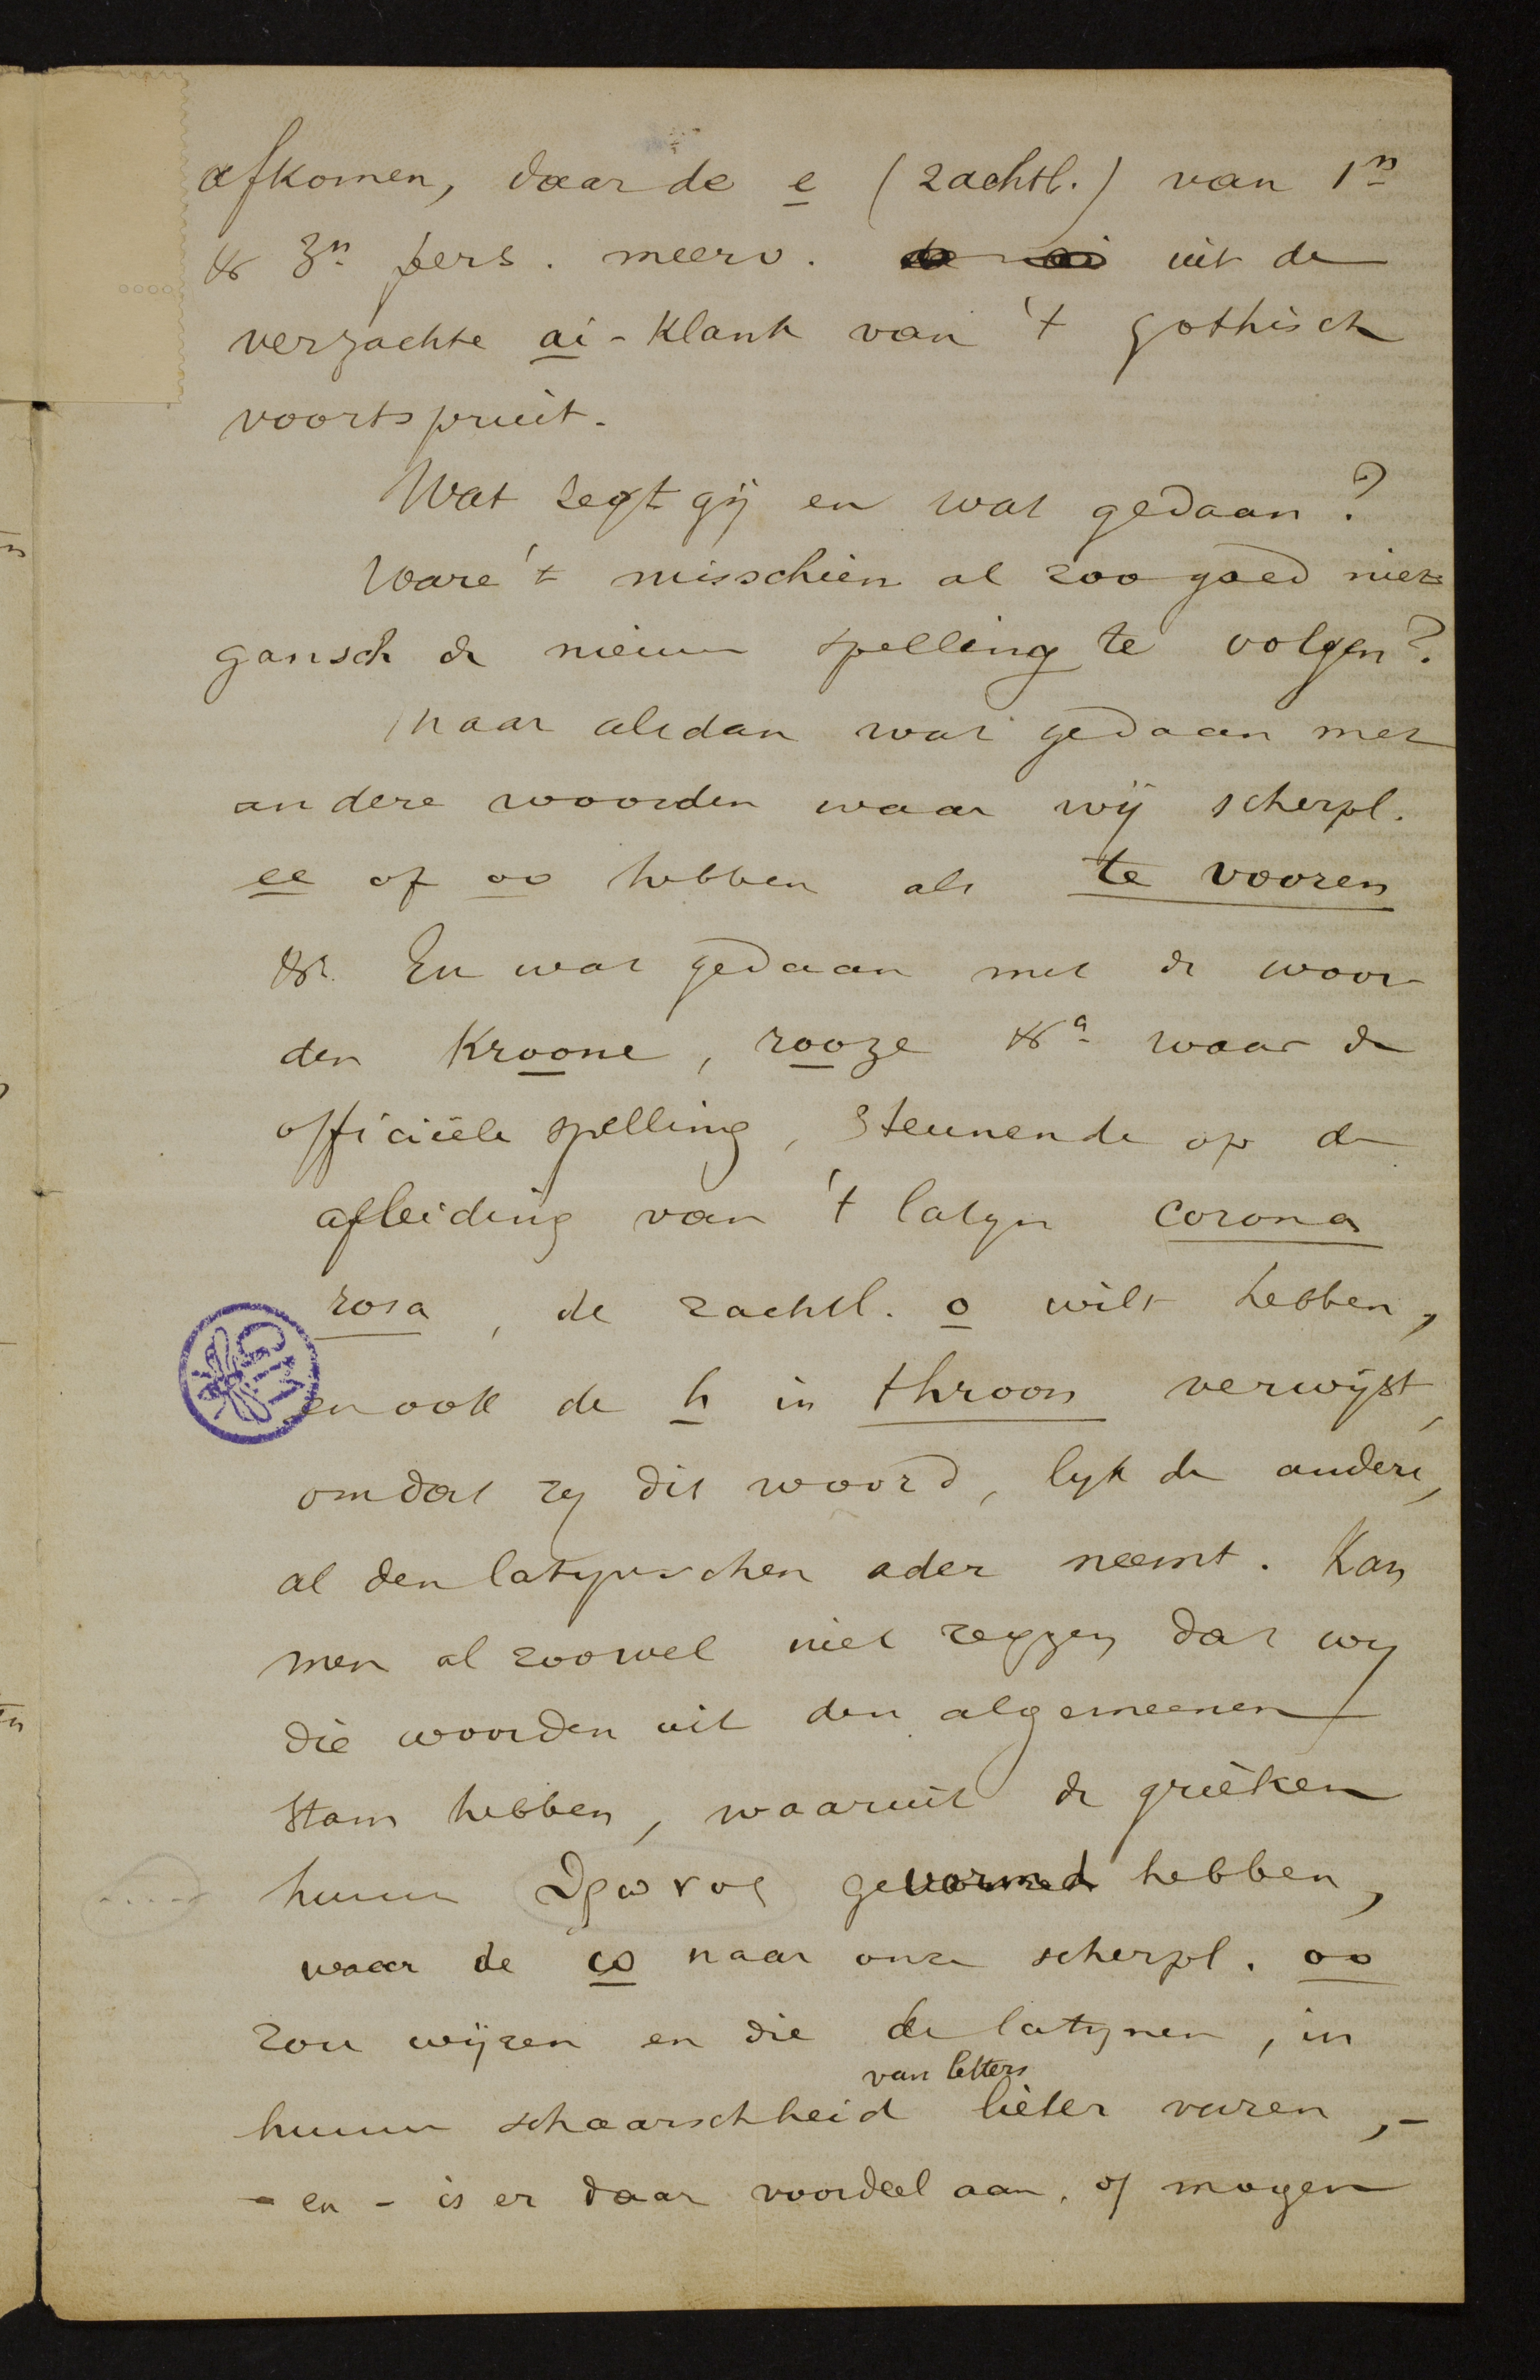 afkomen, daar de e (zachtl.) van 1n
& 3n pers. meerv. uit de
verzachte ai-klank van 't gothisch
voortspruit.
Wat zegt gij en wat gedaan?
Ware 't misschien al zoo goed niet
gansch de nieuwe spelling te volgen?
Maar alsdan wat gedaan met
andere woorden waar wij scherpl.
ee of oo hebben als te vooren
&a. En wat gedaan met de woor-
den Kroone, rooze &a waar de
officiëele spelling, steunende op de
afleiding van 't latyn corona
rosa, de zachtl. o wilt hebben,
en ook de h in throon verwijst,
omdat zy dit woord, lyk de andere,
al den latynschen ader neemt. Kan
men al zoowel niet zeggen dat wy
die woorden uit den algemeenen
stam hebben, waaruit de grieken
hunne θρονος gevormd hebben,
waar de ω naar onze scherpl. oo
zou wijzen en die de latynen, in
van letters
hunne schaarschheid lieten varen,-
- en - is er daar voordeel aan, of mogen